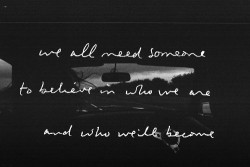 we all need someone
to believe in who we are
and who we'll become